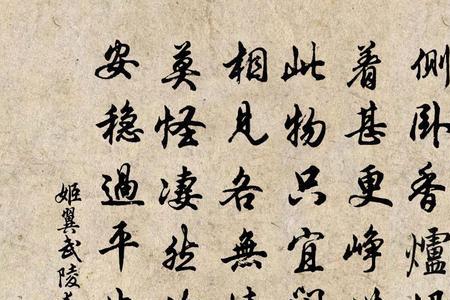 側卧香爐
着甚更峥
此物只宜
相見各無
莫怪凄然
安稳過平
姬翼武陵